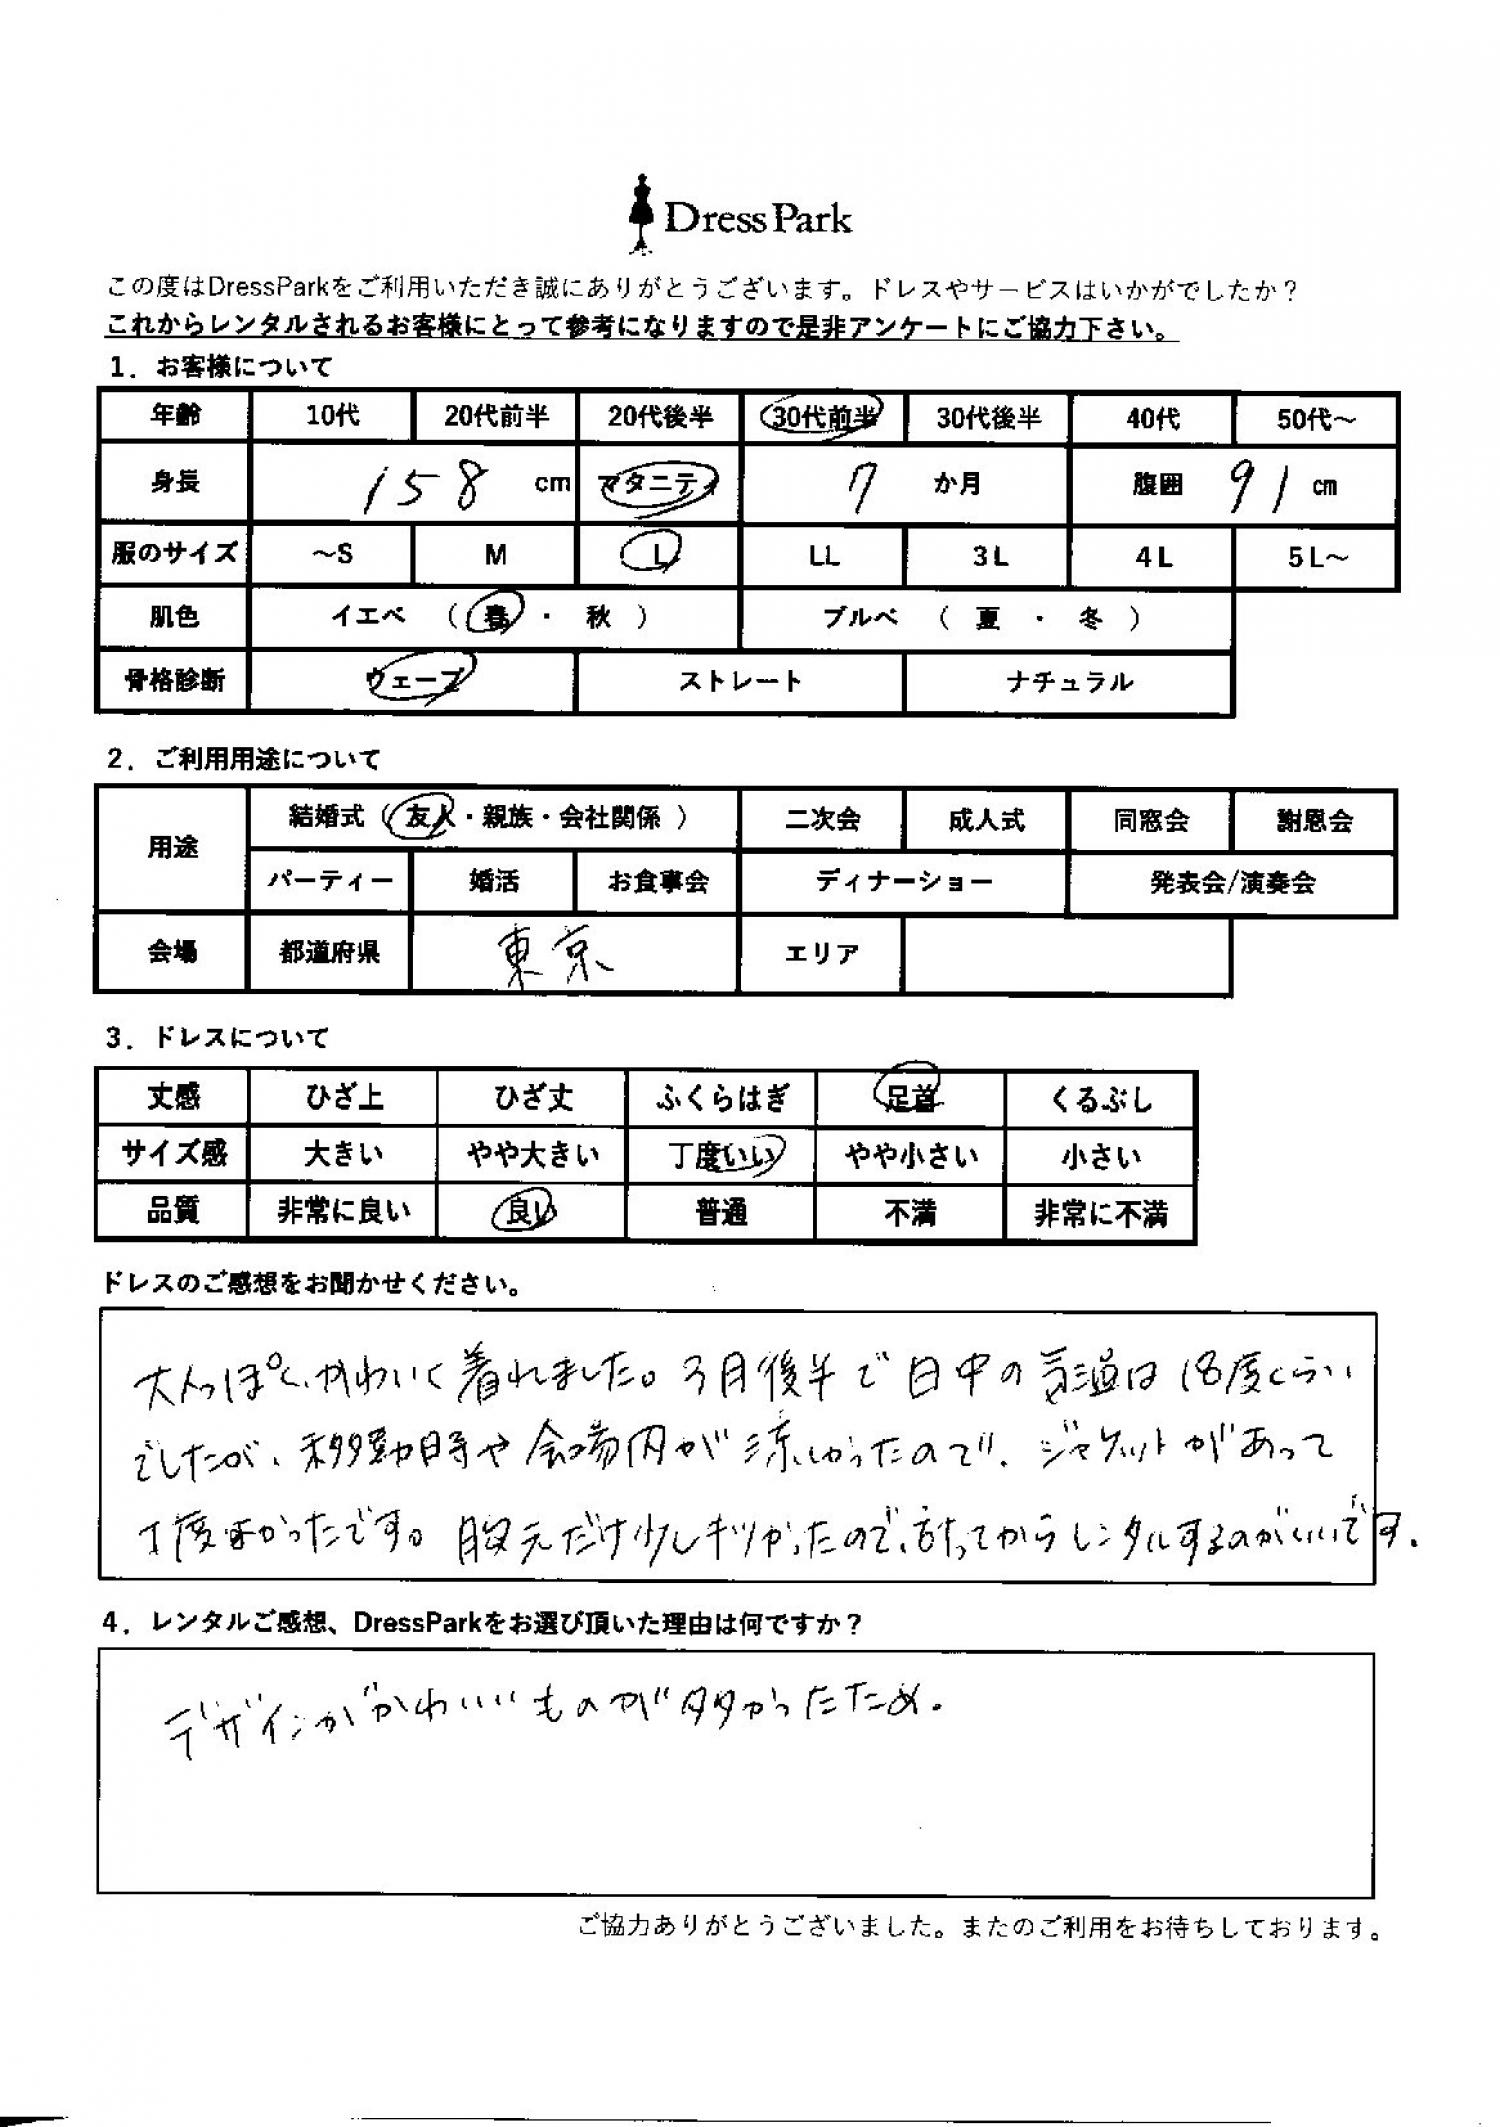 Dress Park
この度はDressParkをご利用いただき誠にありがとうございます。ドレスやサービスはいかがでしたか？
これからレンタルされるお客様にとって参考になりますので是非アンケートにご協力下さい。
1．お客様について
年齢 10代 20代前半 20代後半 30代前半 30代後半 40代 50代～
身長 158 cm マタニティ 7 か月 腹囲 91 cm
服のサイズ ～S M L LL 3L 4L 5L～
肌色 イエベ （ 春 ・ 秋 ） ブルベ （ 夏 ・ 冬 ）
骨格診断 ウェーブ ストレート ナチュラル
2．ご利用用途について
用途 結婚式（ 友人・親族・会社関係 ） 二次会 成人式 同窓会 謝恩会
パーティー 婚活 お食事会 ディナーショー 発表会/演奏会
会場 都道府県 東京 エリア
3．ドレスについて
丈感 ひざ上 ひざ丈 ふくらはぎ 足首 くるぶし
サイズ感 大きい やや大きい 丁度いい やや小さい 小さい
品質 非常に良い 良い 普通 不満 非常に不満
ドレスのご感想をお聞かせください。
大人っぽく、かわいく着れました。3月後半で日中の気温は18度くらい
でしたが、移動時や会場内が涼しかったので、ジャケットがあって
丁度よかったです。胸元だけ少しキツかったので、試着してからレンタルするのがいいです.
4．レンタルご感想、DressParkをお選び頂いた理由は何ですか？
デザインがかわいいものが多かったため.
ご協力ありがとうございました。またのご利用をお待ちしております。